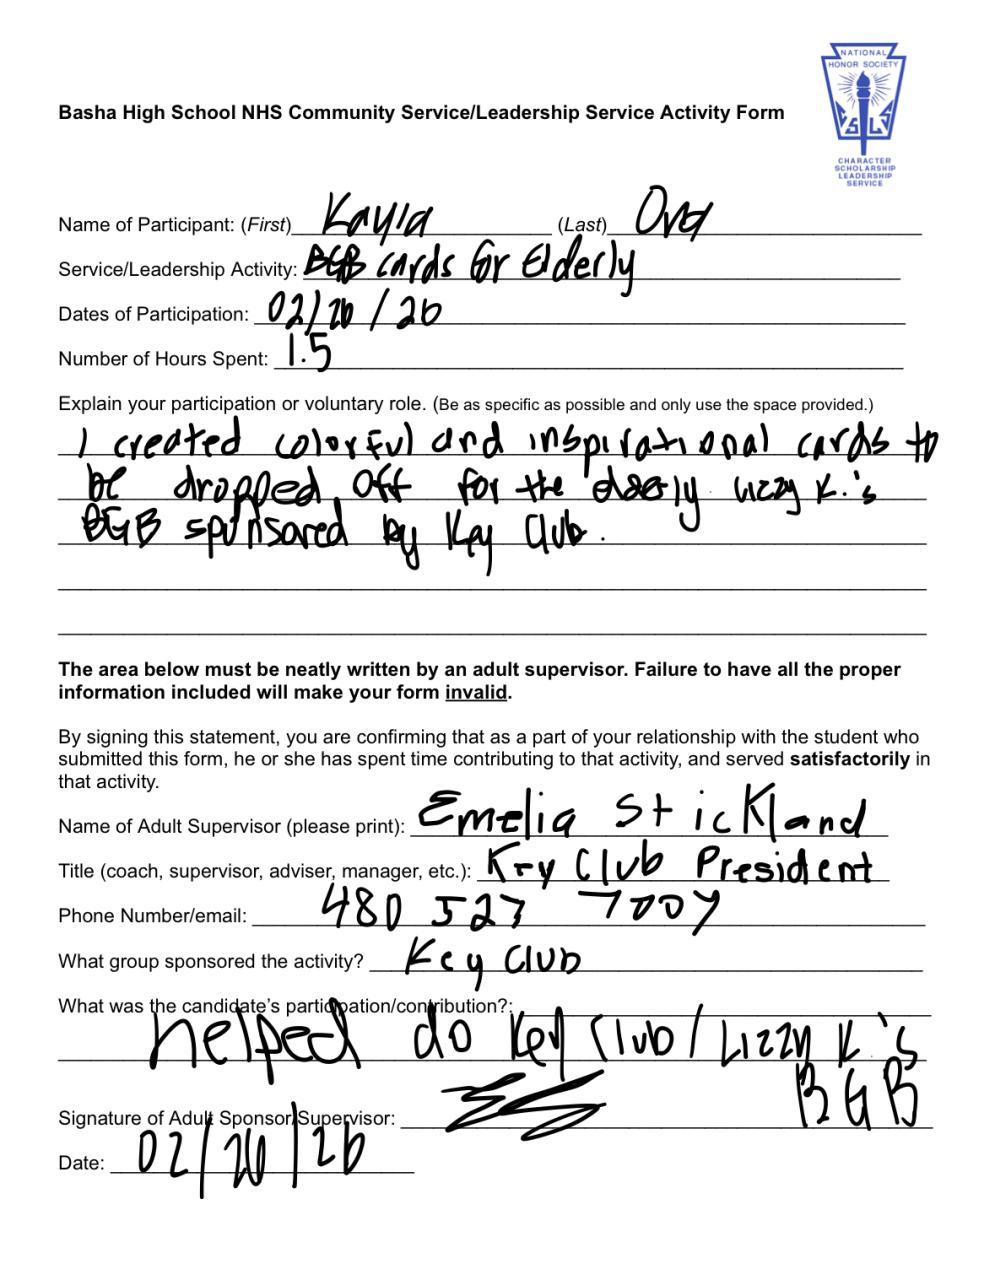 NATIONAL
HONOR SOCIETY
C S L S
CHARACTER
SCHOLARSHIP
LEADERSHIP
SERVICE
Basha High School NHS Community Service/Leadership Service Activity Form
Name of Participant: (First) Kayla (Last) Ona
Service/Leadership Activity: BGB cards for Elderly
Dates of Participation: 02/26/26
Number of Hours Spent: 1.5
Explain your participation or voluntary role. (Be as specific as possible and only use the space provided.)
I created colorful and inspirational cards to
be dropped off for the elderly Lizzy K.'s
BGB sponsored by Key Club.
The area below must be neatly written by an adult supervisor. Failure to have all the proper
information included will make your form invalid.
By signing this statement, you are confirming that as a part of your relationship with the student who
submitted this form, he or she has spent time contributing to that activity, and served satisfactorily in
that activity.
Name of Adult Supervisor (please print): Emelia Stickland
Title (coach, supervisor, adviser, manager, etc.): Key Club President
Phone Number/email: 480 527 7007
What group sponsored the activity? Key Club
What was the candidate's participation/contribution?:
helped do Key Club/Lizzy K.'s
BGB
Signature of Adult Sponsor/Supervisor:
Date: 02/26/26